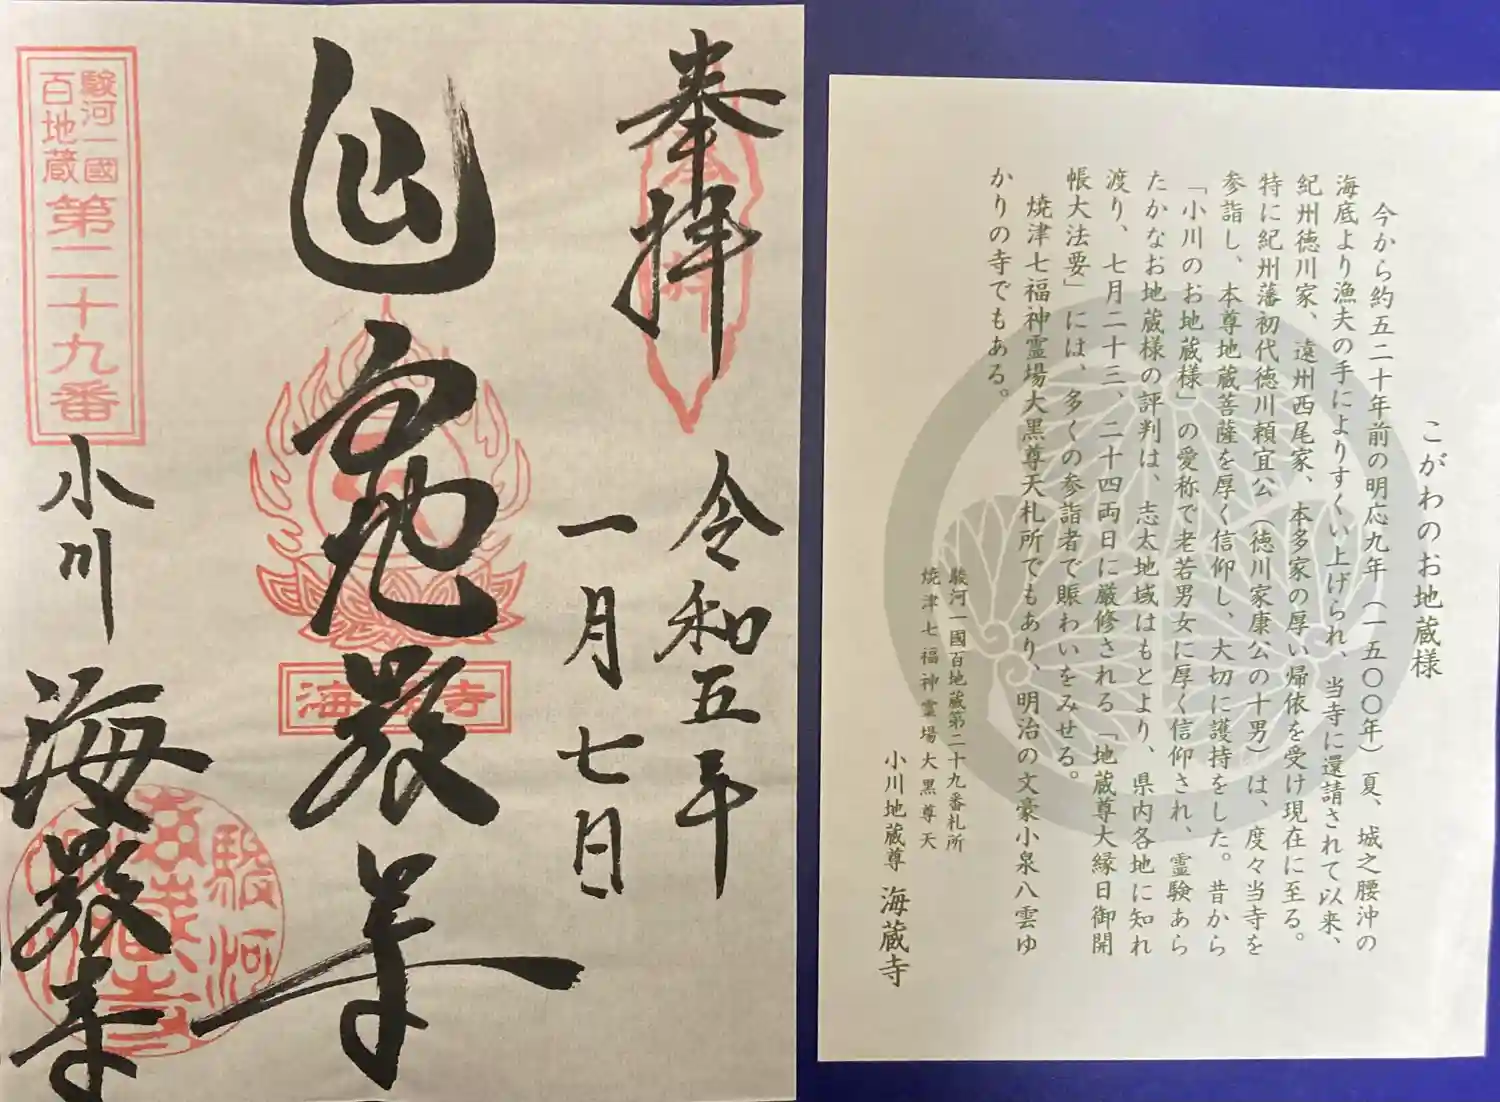 奉拝
令和五年
一月七日
地蔵尊
駿河一國
百地蔵
第二十九番
小川
海蔵寺
海蔵寺
駿河
こがわのお地蔵様
今から約五二十年前の明応九年（一五〇〇年）夏、城之腰沖の
海底より漁夫の手によりすくい上げられ、当寺に還請されて以来、
紀州徳川家、遠州西尾家、本多家の厚い帰依を受け現在に至る。
特に紀州藩初代徳川頼宜公（徳川家康公の十男）は、度々当寺を
参詣し、本尊地蔵菩薩を厚く信仰し、大切に護持をした。昔から
「小川のお地蔵様」の愛称で老若男女に厚く信仰され、霊験あら
たかなお地蔵様の評判は、志太地域はもとより、県内各地に知れ
渡り、七月二十三、二十四両日に厳修される「地蔵尊大縁日御開
帳大法要」には、多くの参詣者で賑わいをみせる。
焼津七福神霊場大黒尊天札所でもあり、明治の文豪小泉八雲ゆ
かりの寺でもある。
駿河一國百地蔵第二十九番札所
焼津七福神霊場大黒尊天
小川地蔵尊 海蔵寺